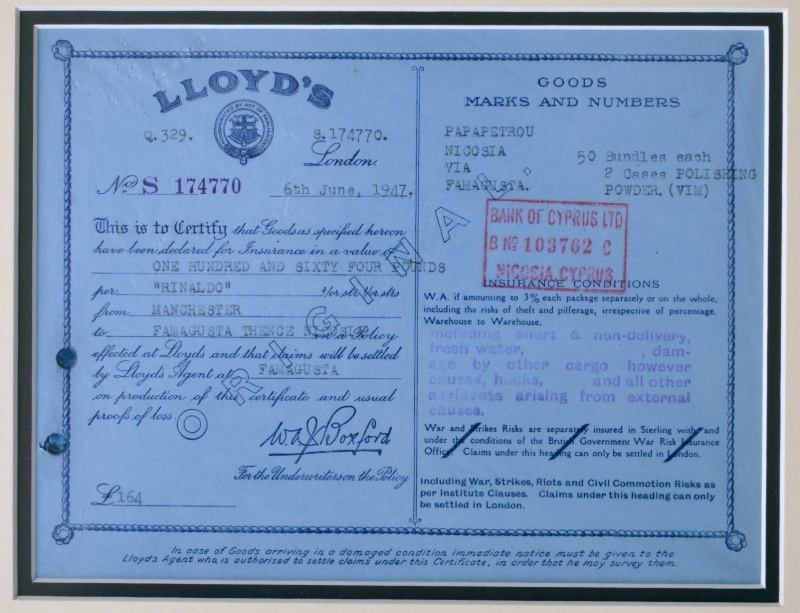 LLOYD'S
INCORPORATED BY ACT OF PARLIAMENT
Q.329. S.174770.
London,
No. S 174770 6th June, 1947.
This is to Certify that Goods as specified hereon
have been declared for Insurance in a value of
ONE HUNDRED AND SIXTY FOUR POUNDS
per "RINALDO" &/or str &/or strs
from MANCHESTER
to FAMAGUSTA THENCE NICOSIA on a Policy
effected at Lloyd's and that claims will be settled
by Lloyd's Agent at FAMAGUSTA
on production of this certificate and usual
proofs of loss.
For the Underwriters on the Policy
£164
ORIGINAL.
GOODS
MARKS AND NUMBERS
PAPAPETROU
NICOSIA
VIA
FAMAGUSTA.
50 Bundles each
2 Cases POLISHING
POWDER. (VIM)
BANK OF CYPRUS LTD
B No 103762 C
NICOSIA, CYPRUS
INSURANCE CONDITIONS
W.A. if amounting to 3% each package separately or on the whole,
including the risks of theft and pilferage, irrespective of percentage.
Warehouse to Warehouse.
including short & non-delivery,
fresh water, , dam-
age by other cargo however
caused, hooks, and all other
accidents arising from external
causes.
War and Strikes Risks are separately insured in Sterling with and
under the conditions of the British Government War Risk Insurance
Office. Claims under this heading can only be settled in London.
Including War, Strikes, Riots and Civil Commotion Risks as
per Institute Clauses. Claims under this heading can only
be settled in London.
In case of Goods arriving in a damaged condition immediate notice must be given to the
Lloyd's Agent who is authorised to settle claims under this Certificate, in order that he may survey them.